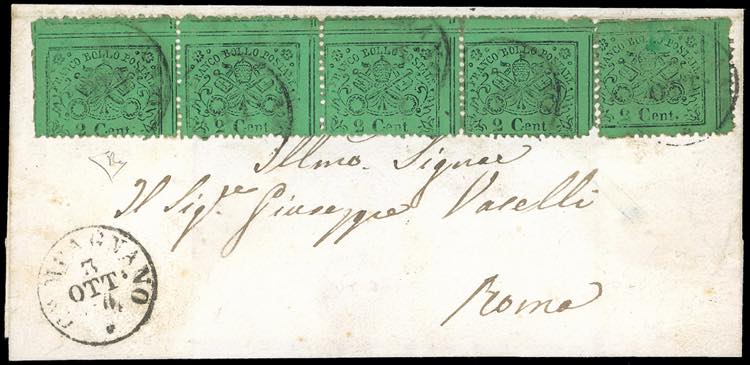 FRANCO BOLLO POSTALE FRANCO BOLLO POSTALE FRANCO BOLLO POSTALE FRANCO BOLLO POSTALE FRANCO BOLLO POSTALE
2 Cent. 2 Cent. 2 Cent. 2 Cent. 2 Cent.
Illmo. Signor
Il Sigre Giuseppe Vaselli
Roma
CAMPAGNANO
3
OTT.